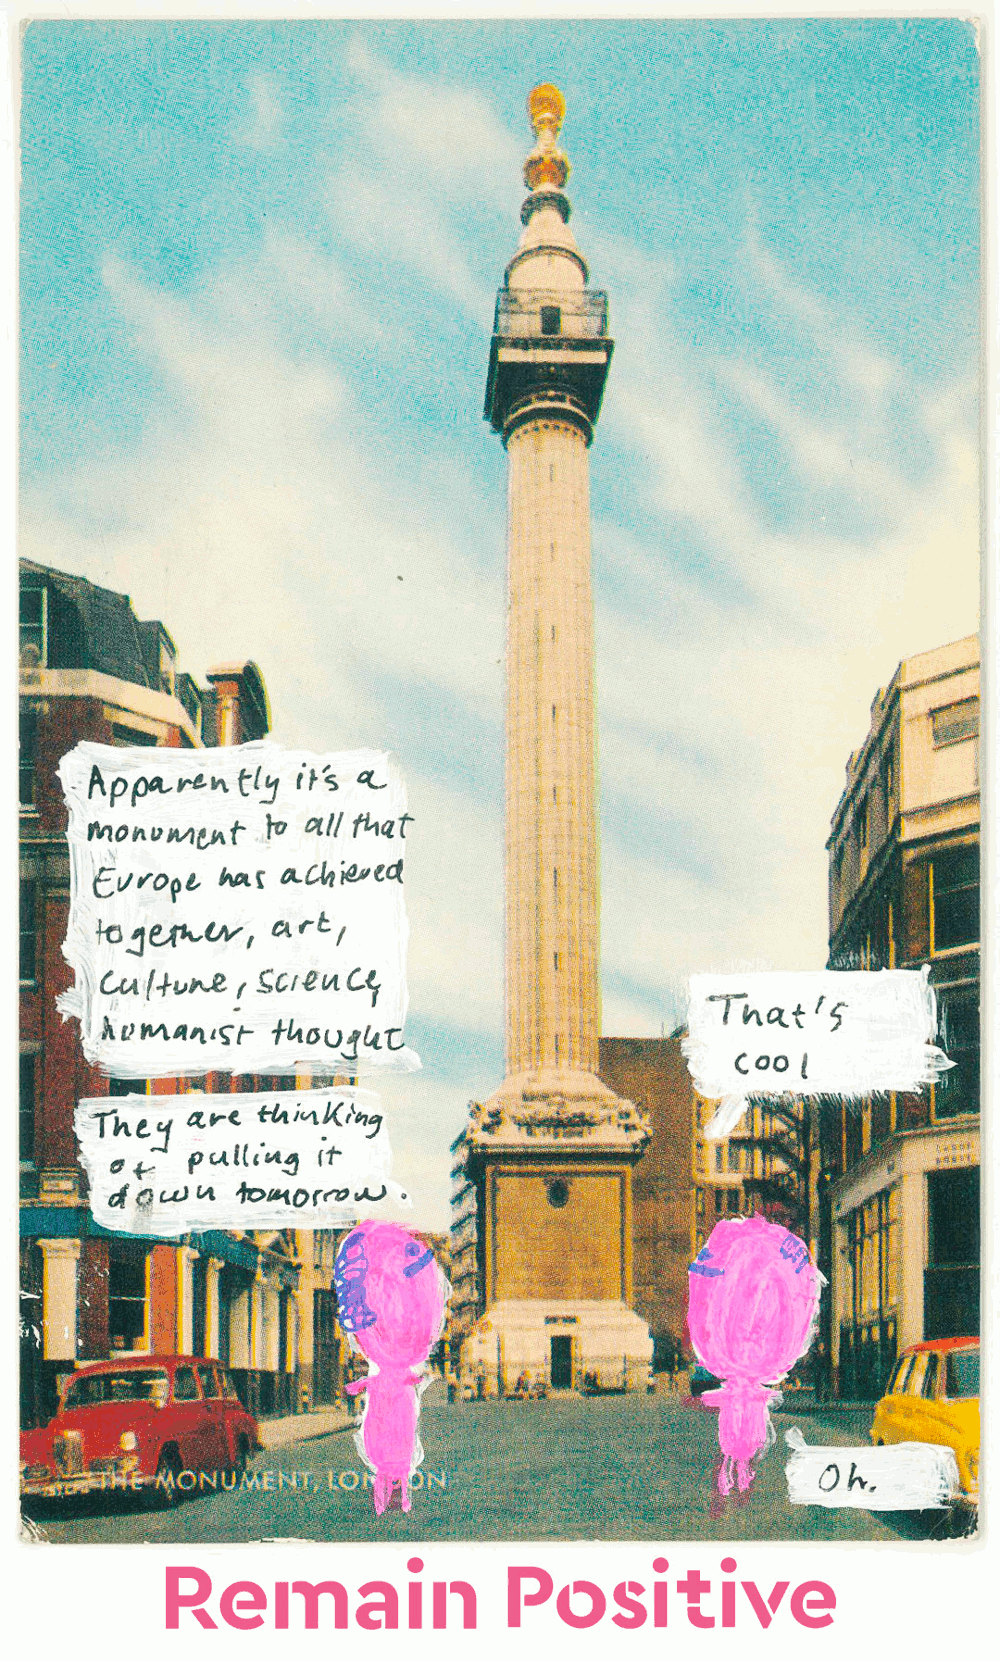 Apparently it's a
monument to all that
Europe has achieved
together, art,
culture, science,
humanist thought
That's
cool
They are thinking
of pulling it
down tomorrow.
Oh.
THE MONUMENT, LONDON
Remain Positive